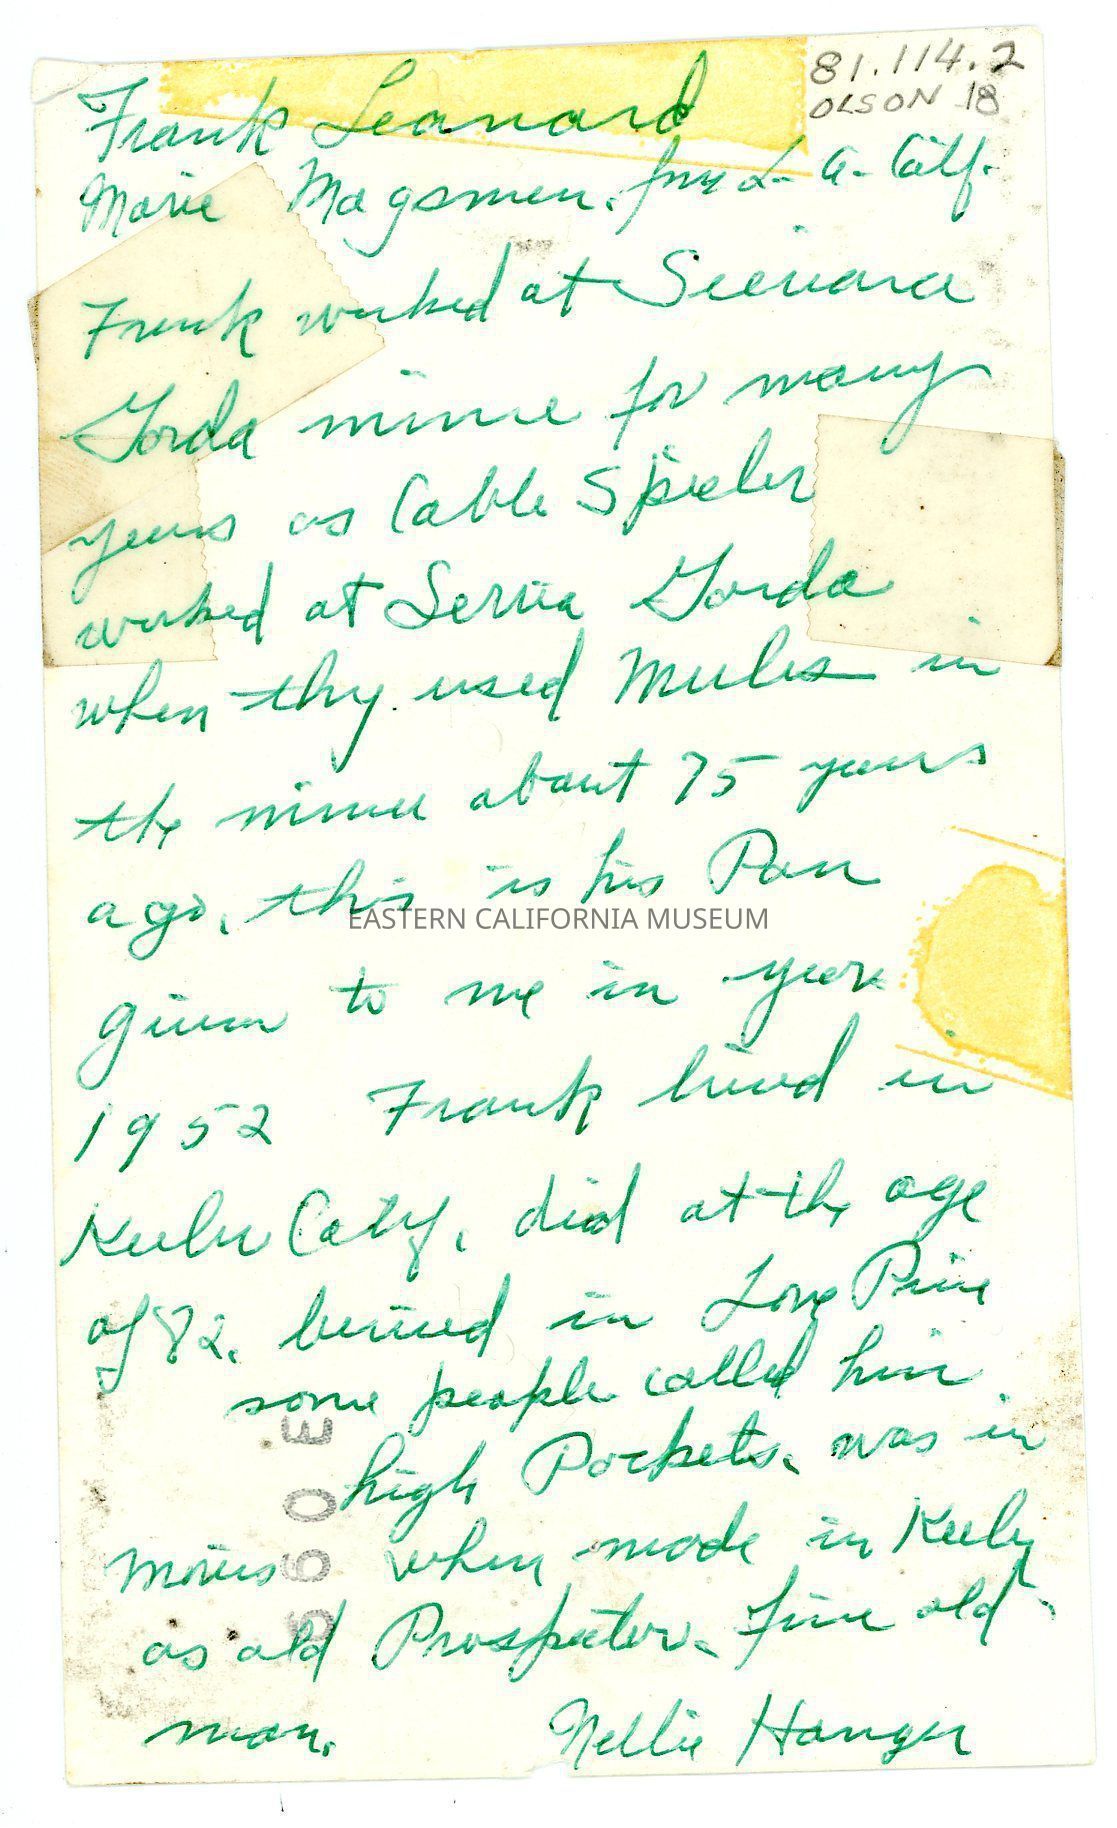 81.114.2
OLSON 18
Frank Leonard
Marie Magsmen. from L. A. Calif.
Frank worked at Seirara
Gorda mine for many
years as Cable Spieler
worked at Serria Gorda
when they used Mules in
the mines about 75 years
ago, this is his Pan
given to me in year
1952 Frank lived in
Keeler Calif. died at the age
of 82. buried in Lone Pine
some people called him
high Pockets. was in
Movies when made in Keeler
as old Prospector. Fine old
man. Nellie Hanger
EASTERN CALIFORNIA MUSEUM